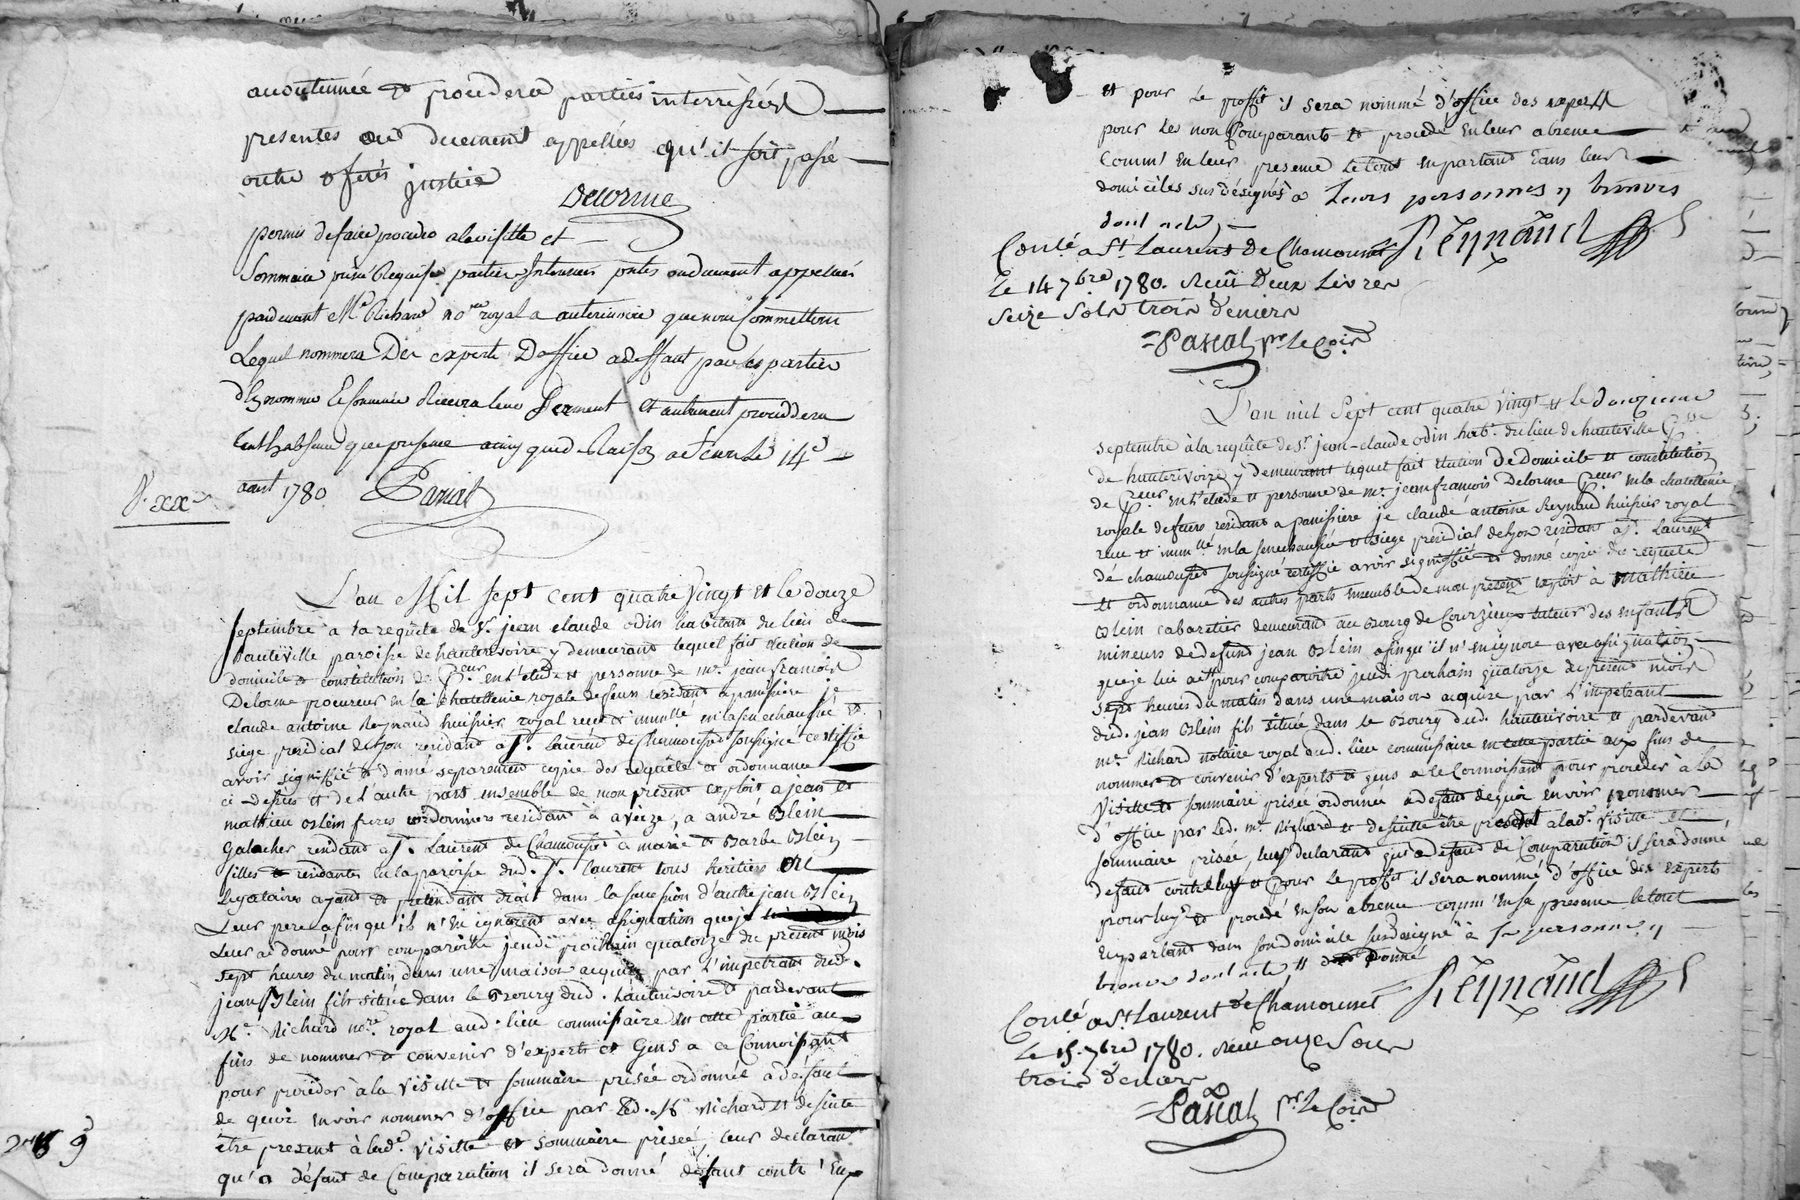 accoutumée et procedera parties interressées
presentes ou duement appellées qu'il soit passé
outre et ferés justice
Delorme
permis de faire proceder a la visitte et
Sommaire prisée Requise parties Interessées pntes ou duement appellées
pardevant Me Richard nore royal a auterivoire que nous Commettons
Lequel nommera Des experts D'office a deffaut par les parties
d'En nommer le Commissaire Recevra leur Serment et autrement proceddera
tant En absence que presence ainsy que de Raison a feurs Le 14e
aout 1780. Parial
L'an Mil Sept Cent quatre Vingt et le douze
septembre a la requête de Sr. jean claude odin habitant du lieu de
hauteville paroisse de hauterivoire y demeurant lequel fait élection de
domicile et constitution de Preur en l'étude et personne de me. jean françois
Delorme procureur en la chatellenie royale de feurs residant a panissière je
claude antoine Reynaud huissier royal receu et immatlé en la senechaussée et
siege presidial de Lyon residant a St. Laurent de Chamousset soussigné certiffie
avoir signiffié et donné separement copie des requête et ordonnance
ci dessus et de l'autre part ensemble de mon present exploit a jean et
mathieu Blein freres cordonniers residant à aveize, a andré Blein
Galocher residant a St. Laurent de Chamousset à marie et Barbe Blein
filles et residantes en la paroisse dud. St. laurent tous héritiers ou
Legataires ayant et prétendant droit dans la succession d'autre jean Blein
Leur pere afin qu'il n'en ignorent avec assignation que je
leur ai donné pour comparoitre jeudi prochain quatorze du présent mois
sept heures du matin, dans une maison acquise par l'impetrant dud.
jean Blein fils située dans le Bourg dud. hauterivoire et pardevant
Me. Richard nore. royal aud. lieu commissaire en cette partie aux
fins de nommer et convenir d'experts et Gens a ce Connoissant
pour proceder à la Visitte et sommaire prisée ordonnée a défaut
de quoi en voir nommer d'office par led. Me Richard et de suitte
être present à lade. visitte et sommaire prisée, leur declarant
qu'a défaut de Comparution il sera donné défaut contr'Eux
et pour le proffit il sera nommé d'office des experts
pour les non Comparants et procedé en leur absence
Comm' en leur presence le tout en parlant dans leurs
domiciles sus désignés a Leurs personnes y trouvés
dont acte,
Reynaud
Conlé a St Laurent de Chamousset
Le 14 7bre 1780. Reçu Deux Livres
Seize Sols trois deniers
Pascal
L'an mil Sept cent quatre Vingt et le douzieme
septembre à la requête de Sr. jean-claude odin habt. du lieu de hauteville Psse
de hauterivoire y demeurant lequel fait élection de Domicile et constitution
de Preur en l'étude et personne de me. jean françois Delorme Preur en la chatellenie
royale de feurs residant a panissiere je claude antoine Reynaud huissier royal
receu et immatlé en la senechaussée et siege presidial de lyon residant a St. Laurent
de chamousset soussigné certiffie avoir signiffié et donné copie des requete
et ordonnance des autres parts ensemble de mon present exploit à mathieu
Blein cabaretier demeurant au Bourg de Courzieu tuteur des enfants
mineurs de defunt jean Blein afin qu'il n'en ignore avec assignation
que je lui ai pour comparoitre jeudi prochain quatorze du present mois
sept heures du matin dans une maison acquise par l'impetrant
dud. jean Blein fils située dans le Bourg dud. hauterivoire et pardevant
me. Richard notaire royal aud. lieu commissaire en cette partie aux fins de
nommer et convenir d'experts et gens a ce Connoissant pour proceder à la
Visitte et sommaire prisée ordonnée a defaut de quoi en voir nommer
d'office par led. me. Richard et de suitte être present a lade. visitte et
sommaire prisée, luy declarant qu'a defaut de Comparution il sera donné
defaut contre luy et pour le proffit il sera nommé d'office des experts
pour luy et procedé en son absence comm' en sa presence le tout
en parlant dans son domicile sus designé a sa personne y
trouvé dont acte donné
Reynaud
Conlé a St Laurent de Chamousset
Le 15. 7bre 1780. Reçu onze Sous
trois deniers
Pascal